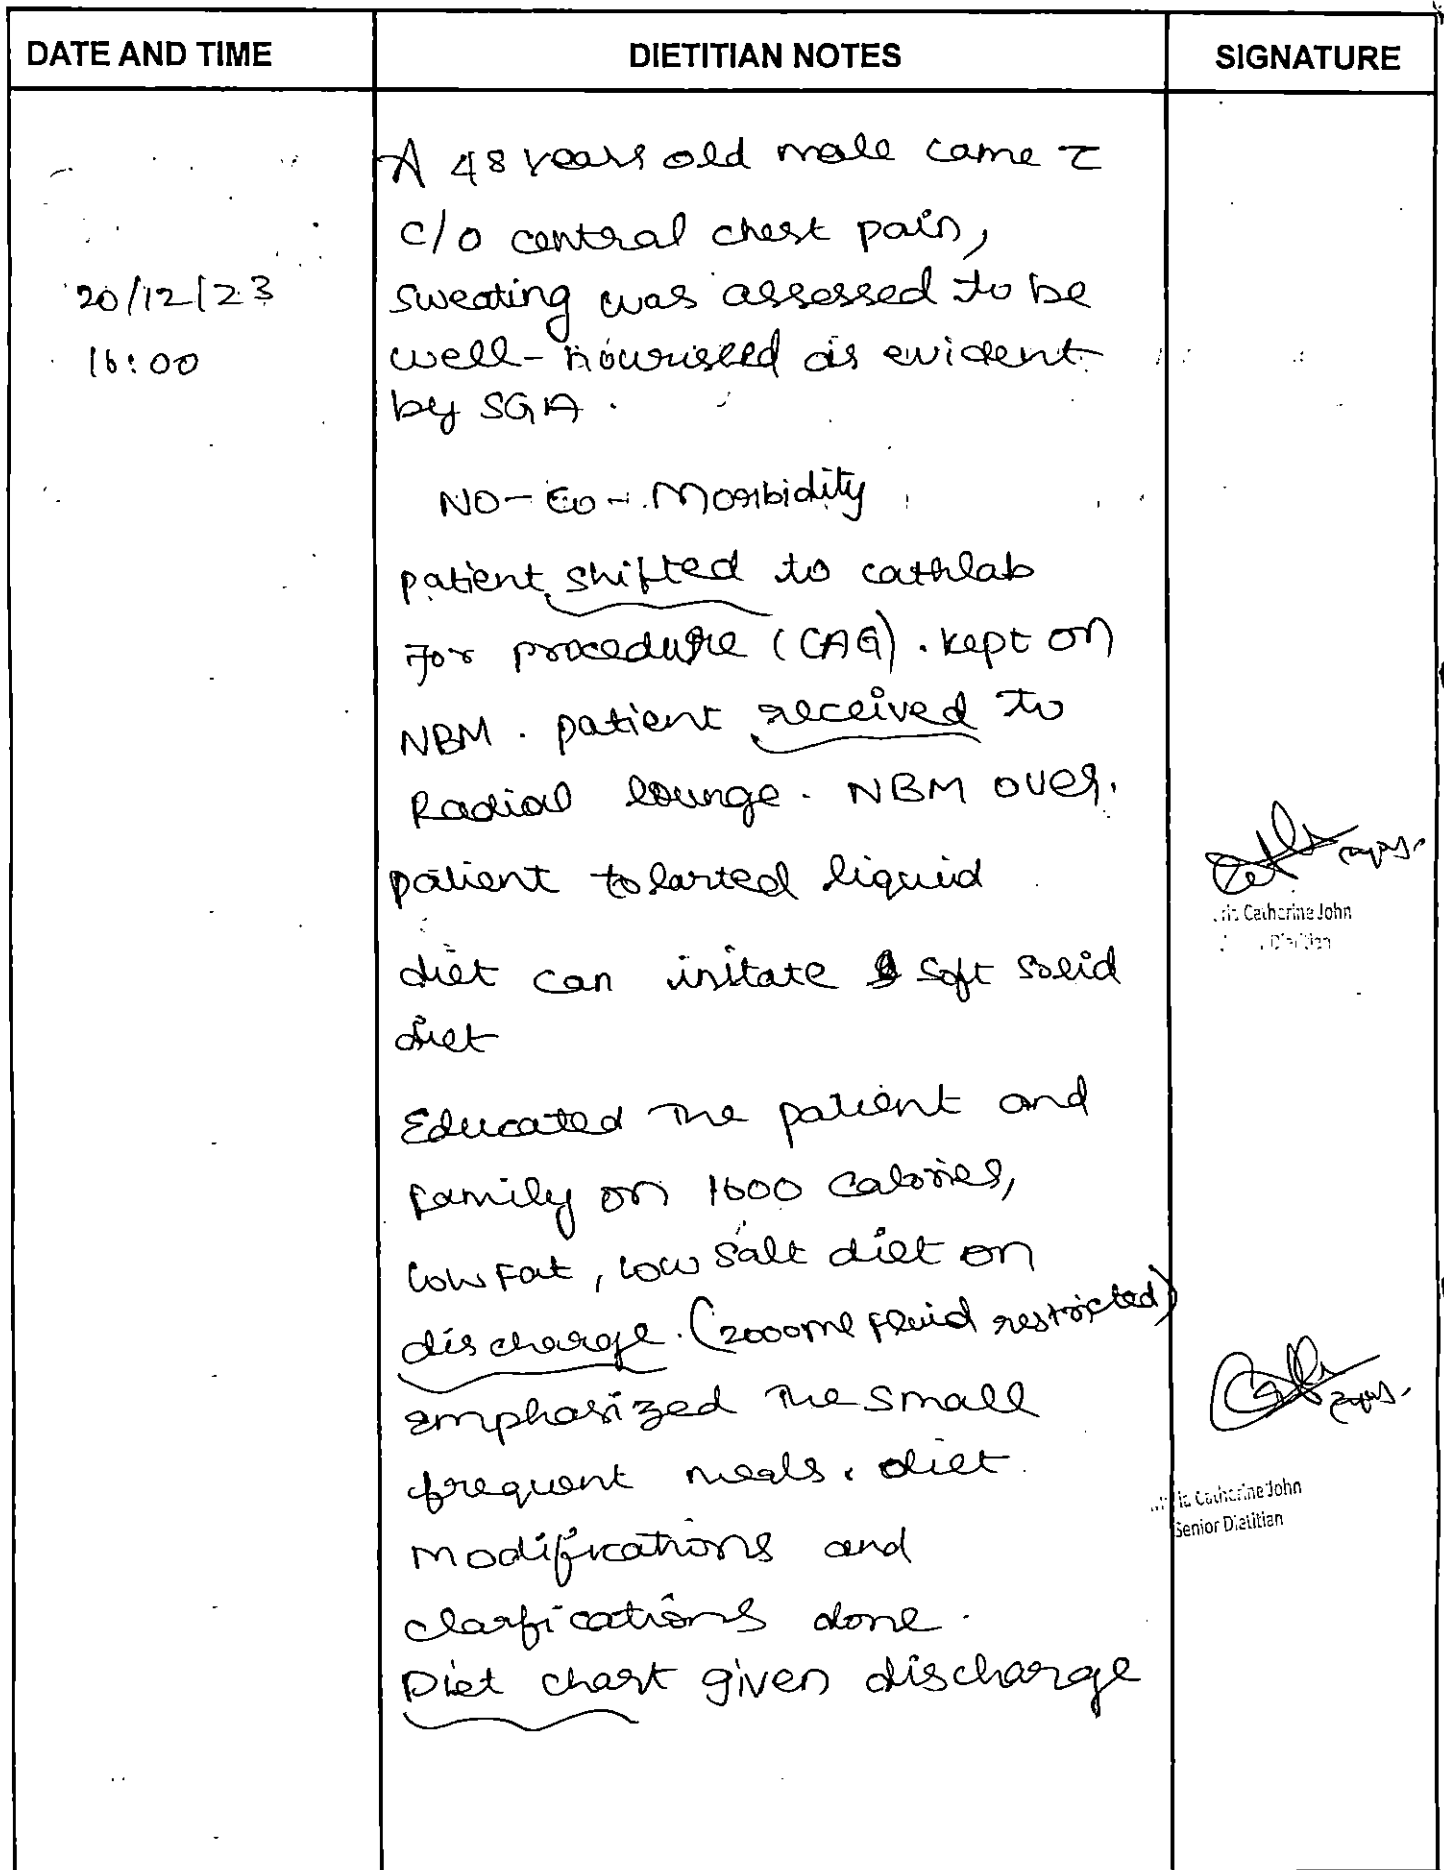 DATE AND TIME
DIETITIAN NOTES
SIGNATURE
20/12/23
16:00
A 48 years old male came c̄
c/o central chest pain,
sweating was assessed to be
well-nourished as evident
by SGA.
NO-Co-Morbidity
patient shifted to cathlab
for procedure (CAG). kept on
NBM. patient received to
Radial lounge. NBM over.
patient tolarted liquid
diet can initate soft solid
diet
Educated the patient and
family on 1600 calories,
low fat, low salt diet on
discharge. (2000ml fluid restricted)
emphasized the small
frequent meals. diet
modifications and
clarfications done.
Diet chart given discharge
Catherine John
Dietitian
Catherine John
Senior Dietitian